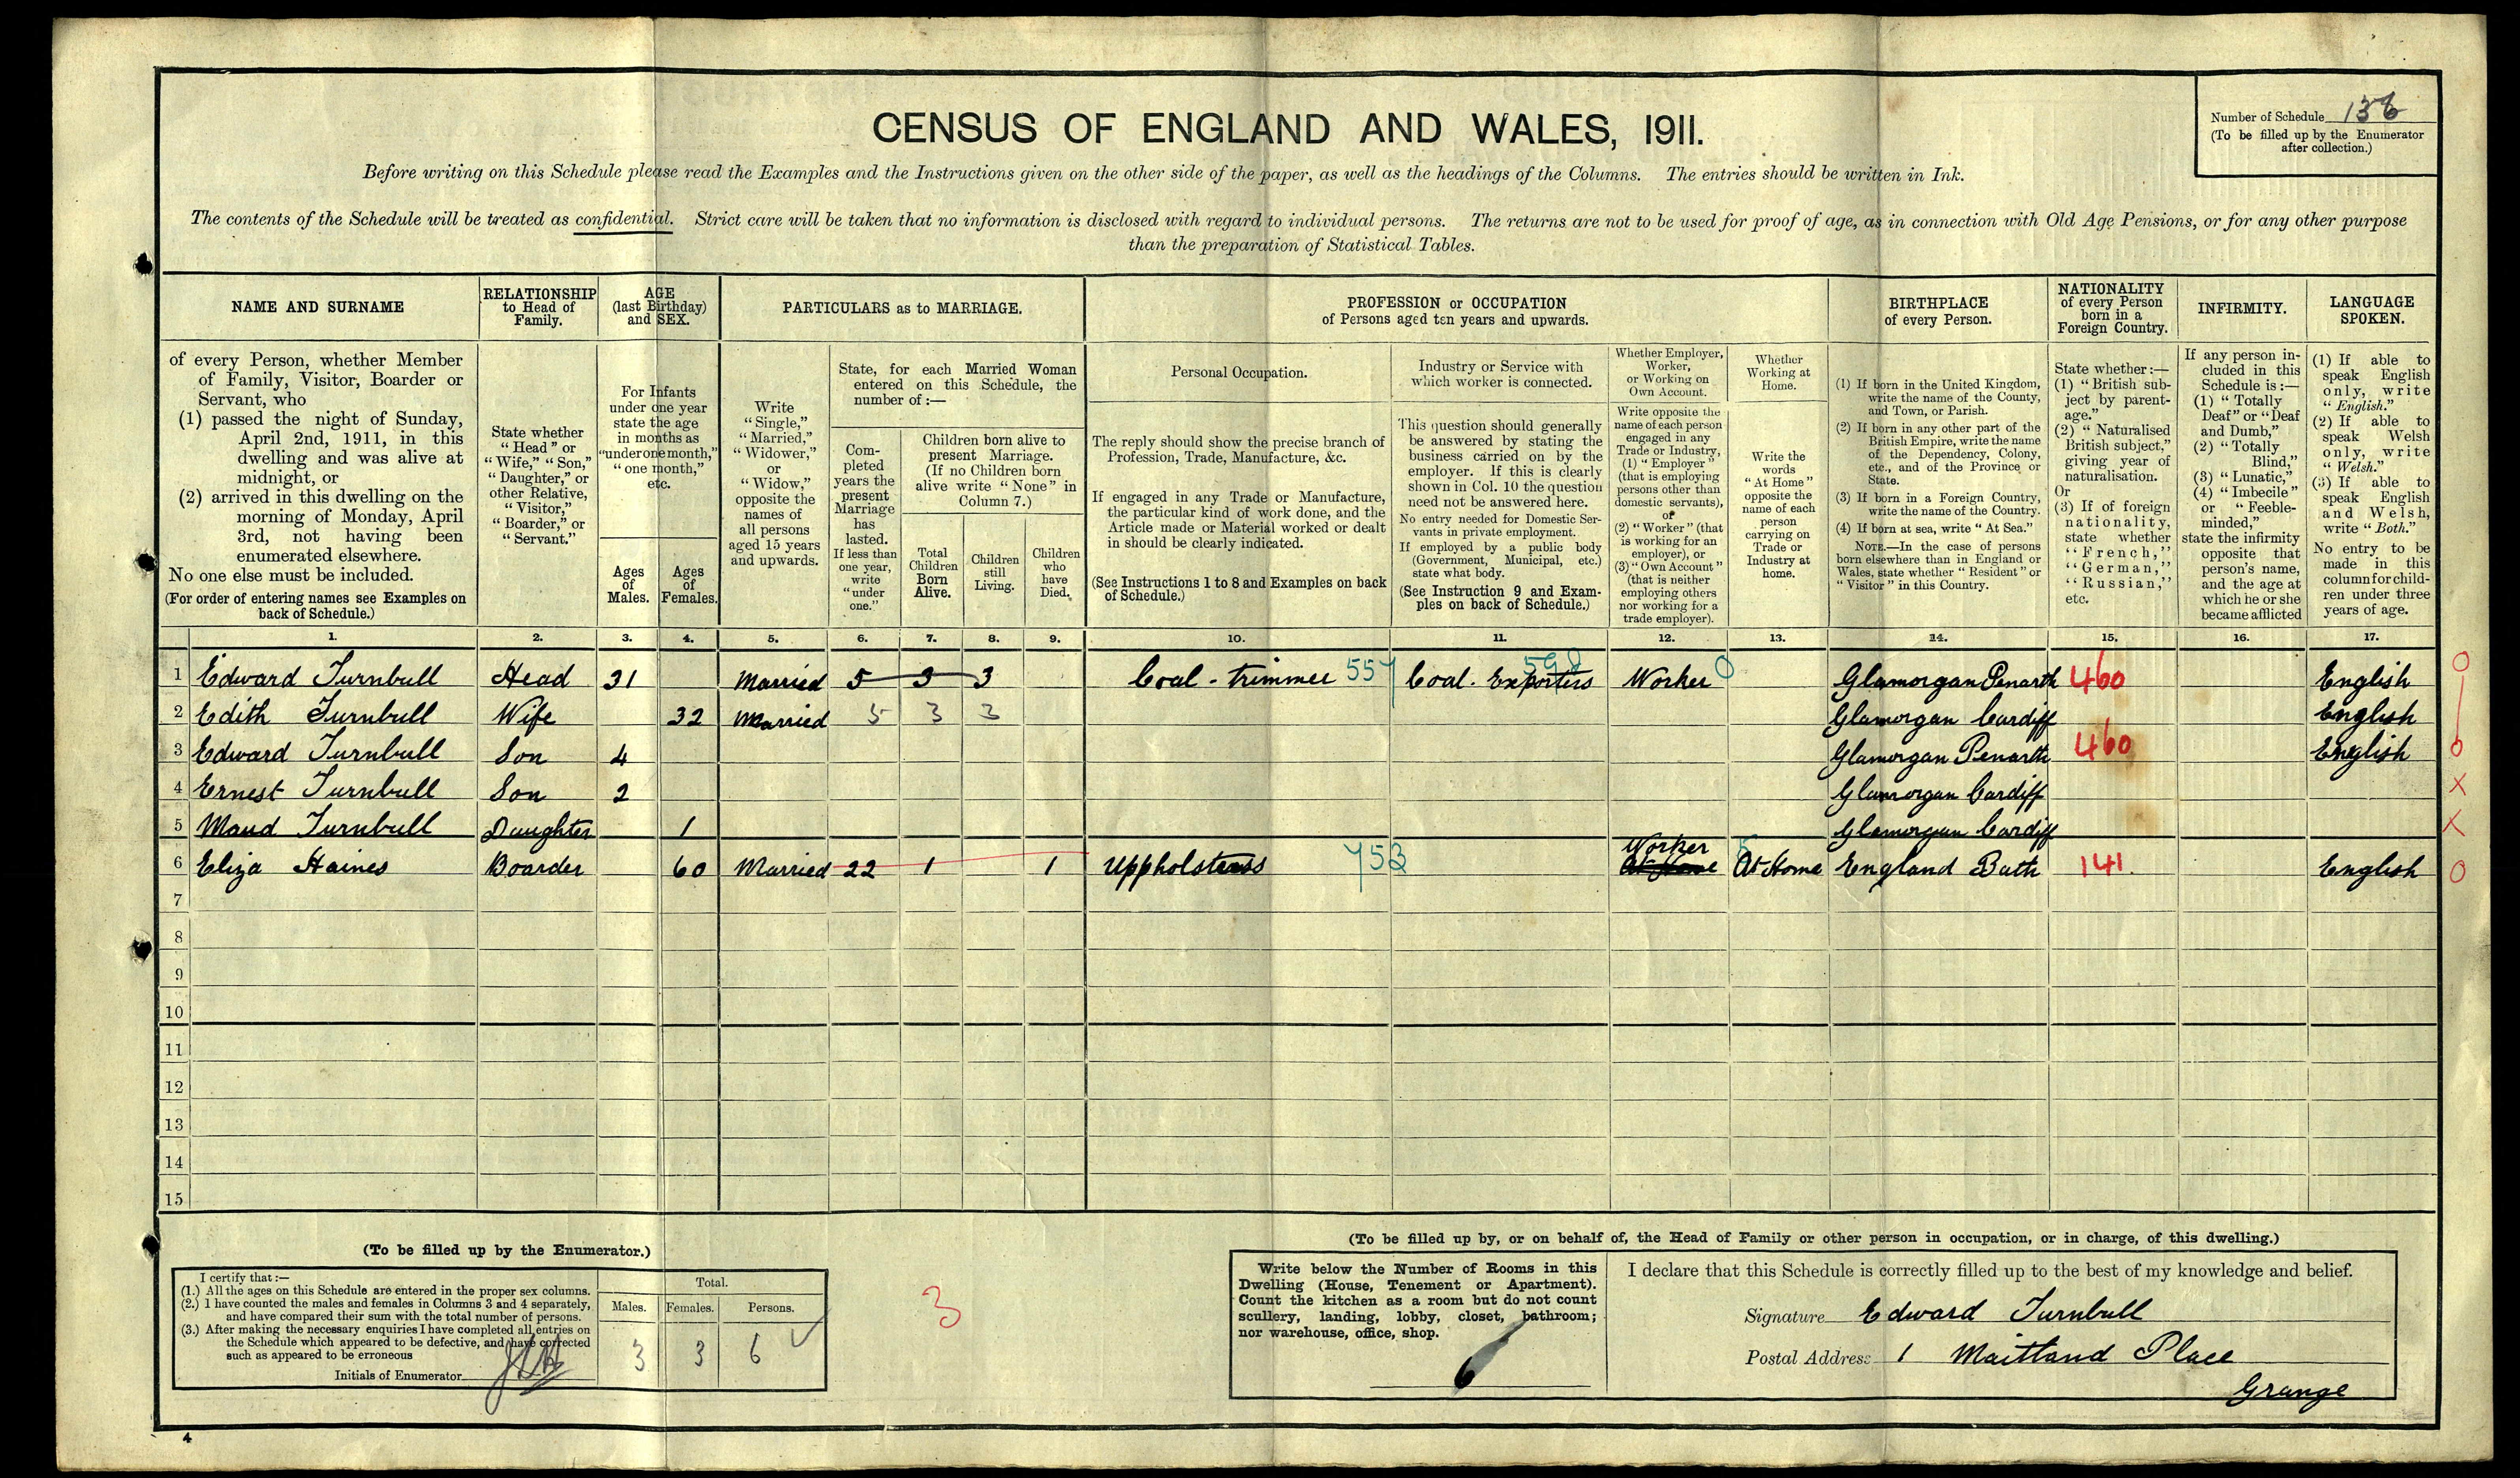 CENSUS OF ENGLAND AND WALES, 1911.
Number of Schedule 136
(To be filled up by the Enumerator
after collection.)
Before writing on this Schedule please read the Examples and the Instructions given on the other side of the paper, as well as the headings of the Columns. The entries should be written in Ink.
The contents of the Schedule will be treated as confidential. Strict care will be taken that no information is disclosed with regard to individual persons. The returns are not to be used for proof of age, as in connection with Old Age Pensions, or for any other purpose
than the preparation of Statistical Tables.
NAME AND SURNAME
of every Person, whether Member
of Family, Visitor, Boarder or
Servant, who
(1) passed the night of Sunday,
April 2nd, 1911, in this
dwelling and was alive at
midnight, or
(2) arrived in this dwelling on the
morning of Monday, April
3rd, not having been
enumerated elsewhere.
No one else must be included.
(For order of entering names see Examples on
back of Schedule.)
RELATIONSHIP
to Head of
Family.
State whether
"Head" or
"Wife," "Son,"
"Daughter," or
other Relative,
"Visitor,"
"Boarder," or
"Servant."
AGE
(last Birthday)
and SEX.
For Infants
under one year
state the age
in months as
"under one month,"
"one month,"
etc.
Ages
of
Males.
Ages
of
Females.
PARTICULARS as to MARRIAGE.
Write
"Single,"
"Married,"
"Widower,"
or
"Widow,"
opposite the
names of
all persons
aged 15 years
and upwards.
State, for each Married Woman
entered on this Schedule, the
number of :—
Com-
pleted
years the
present
Marriage
has
lasted.
If less than
one year,
write
"under
one."
Children born alive to
present Marriage.
(If no Children born
alive write "None" in
Column 7.)
Total
Children
Born
Alive.
Children
still
Living.
Children
who
have
Died.
PROFESSION or OCCUPATION
of Persons aged ten years and upwards.
Personal Occupation.
The reply should show the precise branch of
Profession, Trade, Manufacture, &c.
If engaged in any Trade or Manufacture,
the particular kind of work done, and the
Article made or Material worked or dealt
in should be clearly indicated.
(See Instructions 1 to 8 and Examples on back
of Schedule.)
Industry or Service with
which worker is connected.
This question should generally
be answered by stating the
business carried on by the
employer. If this is clearly
shown in Col. 10 the question
need not be answered here.
No entry needed for Domestic Ser-
vants in private employment.
If employed by a public body
(Government, Municipal, etc.)
state what body.
(See Instruction 9 and Exam-
ples on back of Schedule.)
Whether Employer,
Worker,
or Working on
Own Account.
Write opposite the
name of each person
engaged in any
Trade or Industry,
(1) "Employer"
(that is employing
persons other than
domestic servants),
or
(2) "Worker" (that
is working for an
employer), or
(3) "Own Account"
(that is neither
employing others
nor working for a
trade employer).
Whether
Working at
Home.
Write the
words
"At Home"
opposite the
name of each
person
carrying on
Trade or
Industry at
home.
BIRTHPLACE
of every Person.
(1) If born in the United Kingdom,
write the name of the County,
and Town, or Parish.
(2) If born in any other part of the
British Empire, write the name
of the Dependency, Colony,
etc., and of the Province or
State.
(3) If born in a Foreign Country,
write the name of the Country.
(4) If born at sea, write "At Sea."
NOTE.—In the case of persons
born elsewhere than in England or
Wales, state whether "Resident" or
"Visitor" in this Country.
NATIONALITY
of every Person
born in a
Foreign Country.
State whether :—
(1) "British sub-
ject by parent-
age."
(2) "Naturalised
British subject,"
giving year of
naturalisation.
Or
(3) If of foreign
nationality,
state whether
"French,"
"German,"
"Russian,"
etc.
INFIRMITY.
If any person in-
cluded in this
Schedule is :—
(1) "Totally
Deaf" or "Deaf
and Dumb,"
(2) "Totally
Blind,"
(3) "Lunatic,"
(4) "Imbecile"
or "Feeble-
minded,"
state the infirmity
opposite that
person's name,
and the age at
which he or she
became afflicted
LANGUAGE
SPOKEN.
(1) If able to
speak English
only, write
"English."
(2) If able to
speak Welsh
only, write
"Welsh."
(3) If able to
speak English
and Welsh,
write "Both."
No entry to be
made in this
column for child-
ren under three
years of age.
1. 2. 3. 4. 5. 6. 7. 8. 9. 10. 11. 12. 13. 14. 15. 16. 17.
1 Edward Turnbull Head 31 Married 5 3 3 Coal-trimmer 557 Coal. Exporters 598 Worker 0 Glamorgan Penarth 460 English
2 Edith Turnbull Wife 32 Married 5 3 3 Glamorgan Cardiff English
3 Edward Turnbull Son 4 Glamorgan Penarth 460 English
4 Ernest Turnbull Son 2 Glamorgan Cardiff
5 Maud Turnbull Daughter 1 Glamorgan Cardiff
6 Eliza Haines Boarder 60 Married 22 1 1 Uppholstress 753 Worker At Home At Home England Bath 141 English
7
8
9
10
11
12
13
14
15
(To be filled up by the Enumerator.)
I certify that :—
(1.) All the ages on this Schedule are entered in the proper sex columns.
(2.) I have counted the males and females in Columns 3 and 4 separately,
and have compared their sum with the total number of persons.
(3.) After making the necessary enquiries I have completed all entries on
the Schedule which appeared to be defective, and have corrected
such as appeared to be erroneous
Initials of Enumerator
Total.
Males. Females. Persons.
3 3 6
3
(To be filled up by, or on behalf of, the Head of Family or other person in occupation, or in charge, of this dwelling.)
Write below the Number of Rooms in this
Dwelling (House, Tenement or Apartment).
Count the kitchen as a room but do not count
scullery, landing, lobby, closet, bathroom;
nor warehouse, office, shop.
6
I declare that this Schedule is correctly filled up to the best of my knowledge and belief.
Signature Edward Turnbull
Postal Address 1 Maitland Place
Grange
4